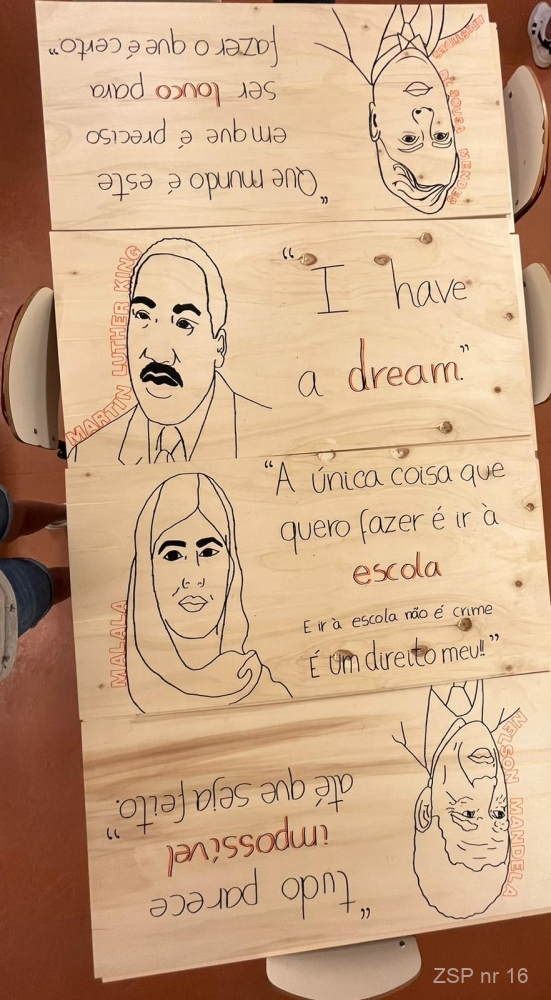 "Que mundo é este
em que é preciso
ser louco para
fazer o que é certo"
DE SOUSA MENDES
MARTIN LUTHER KING
"I have
a dream."
MALALA
"A única coisa que
quero fazer é ir à
escola
E ir à escola não é crime
É um direito meu!!"
NELSON MANDELA
"tudo parece
impossível
até que seja feito."
ZSP nr 16